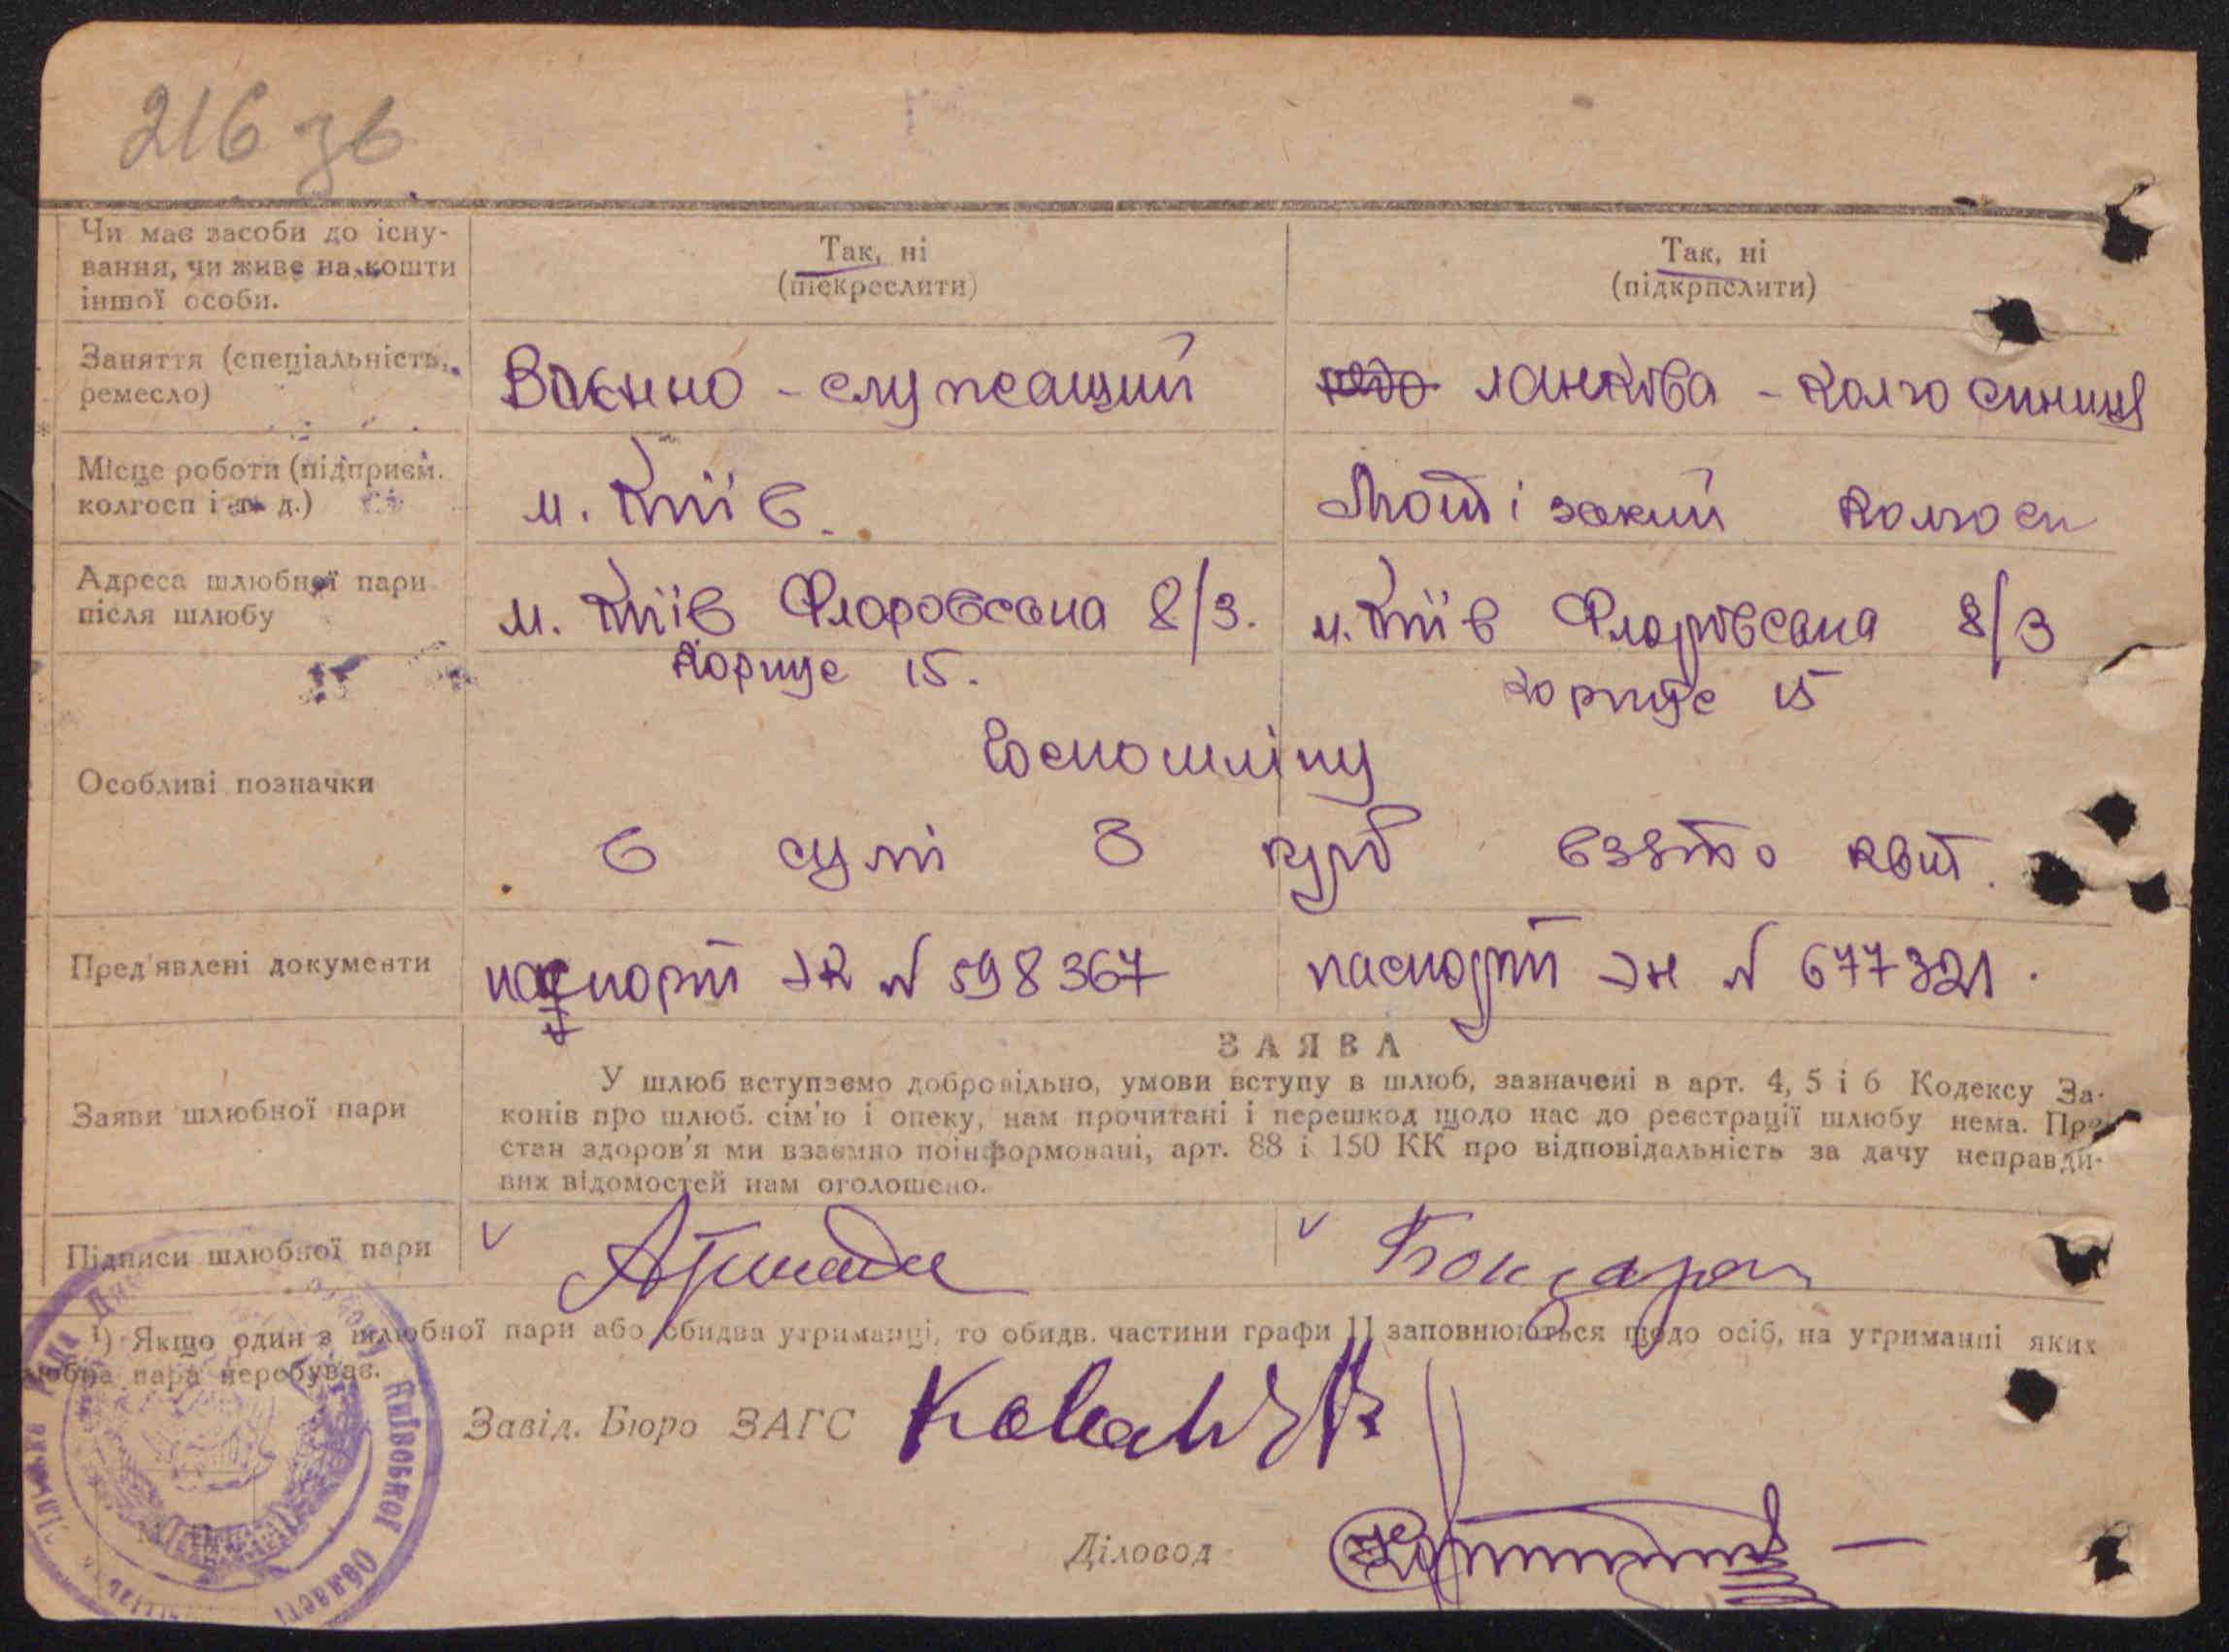 216 зв
Чи має засоби до існу-
вання, чи живе на кошти
іншої особи.
Так, ні
(підкреслити)
Так, ні
(підкрпслити)
Заняття (спеціальність,
ремесло)
Воєнно - служащий
ланкова - колгоспниця
Місце роботи (підприєм.
колгосп і т. д.)
м. Київ
колгосп
Адреса шлюбної пари
після шлюбу
м. Київ Фларовсана 8/3.
корпус 15.
м. Київ Фларовсана 8/3
корпус 15
Особливі позначки
Госпошліну
в сумі 3 крб взято квит.
Пред'явлені документи
паспорт № 598367
паспорт № 677321.
Заяви шлюбної пари
ЗАЯВА
У шлюб вступаємо добровільно, умови вступу в шлюб, зазначені в арт. 4, 5 і 6 Кодексу За-
конів про шлюб. сім'ю і опеку, нам прочитані і перешкод щодо нас до реєстрації шлюбу нема. Про
стан здоров'я ми взаємно поінформовані, арт. 88 і 150 КК про відповідальність за дачу неправди-
вих відомостей нам оголошено.
Підписи шлюбної пари
Бондарен
¹) Якщо один з шлюбної пари або обидва утриманці, то обидв. частини графи 11 заповнюються щодо осіб, на утриманні яких
шлюбна пара перебуває.
Завід. Бюро ЗАГС
Діловод
Київської Області